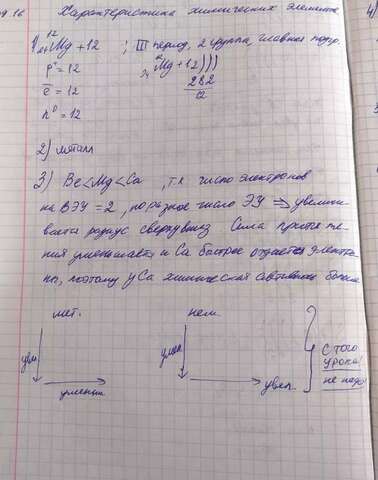 Характеристика химических элементов
1) 12 24 Mg +12 ; III период, 2 группа, главная подгр.
p⁺ = 12
12 24 Mg +12 ) ) )
ē = 12
2 8 2
12
n⁰ = 12
2) металл
3) Be < Mg < Ca , т.к число электронов
на ВЭУ = 2 , но разное число ЭУ ⇒ увеличи-
вается радиус сверху вниз Сила притяже-
ния уменьшается и Ca быстрее отдаёт электро-
ны, поэтому у Ca химическая активность больше
мет.
нем.
увел.
уменьш.
умен.
увел.
С того
урока!
не надо!
4)